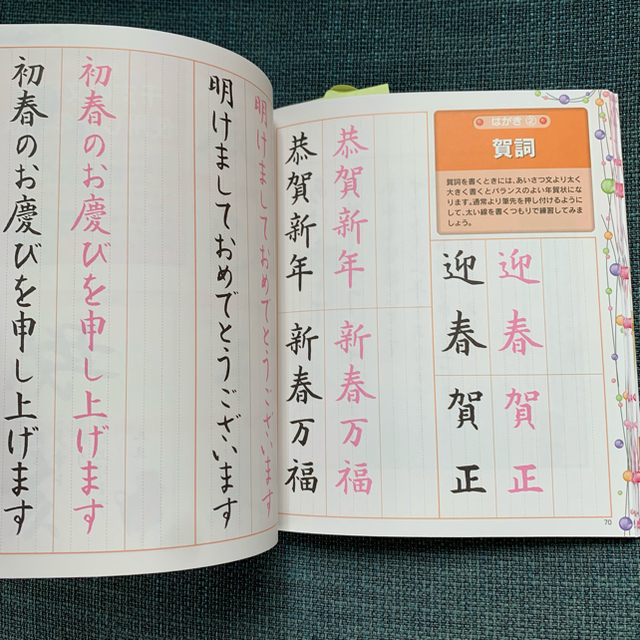 はがき ②
賀詞
賀詞を書くときには、あいさつ文より太く
大きく書くとバランスのよい年賀状にな
ります。通常より筆先を押し付けるように
して、太い線を書くつもりで練習してみま
しょう。
迎春
迎春
賀正
賀正
恭賀新年
恭賀新年
新春万福
新春万福
70
明けましておめでとうございます
明けましておめでとうございます
初春のお慶びを申し上げます
初春のお慶びを申し上げます